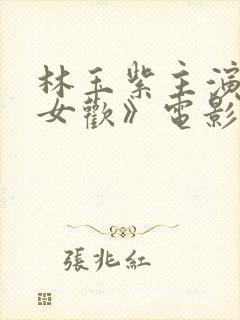 林玉紫主演
女歡》電影
張兆紅